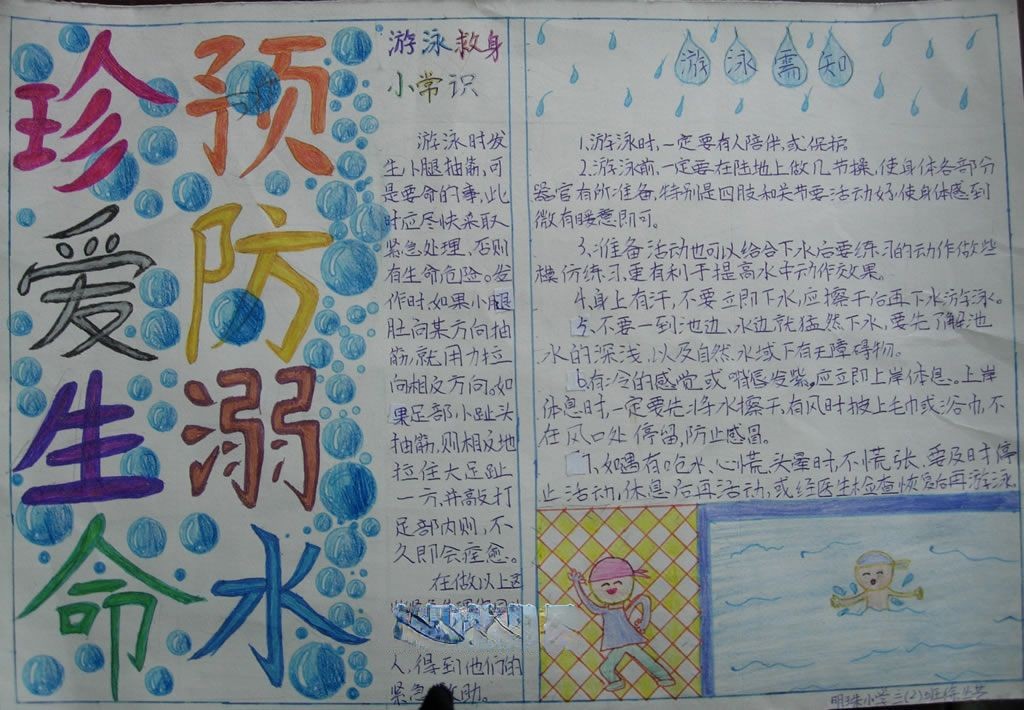 珍爱生命
预防溺水
游泳救身
小常识
游泳时发
生小腿抽筋,可
是要命的事,此
时应尽快采取
紧急处理,否则
有生命危险。发
作时,如果小腿
肚向某方向抽
筋,就用力拉
向相反方向。如
果足部小趾头
抽筋,则相反地
拉住大足趾
一方,并敲打
足部内则,不
久即会痊愈。
在做以上
人,得到他们的
紧急 助。
游泳需知
1.游泳时,一定要有人陪伴或保护
2.游泳前,一定要在陆地上做几节操,使身体各部分
器官有所准备,特别是四肢和关节要活动好使身体感到
微有暖意即可。
3.准备活动也可以结合下水后要练习的动作做些
模仿练习,更有利于提高水中动作效果。
4.身上有汗,不要立即下水,应擦干后再下水游泳。
5.不要一到池边、水边就猛然下水,要先了解池
水的深浅,以及自然水域下有无障碍物。
6.有冷的感觉或嘴唇发紫,应立即上岸休息。上岸
休息时,一定要先将水擦干,有风时披上毛巾或浴巾,不
在风口处停留,防止感冒。
7.如遇有呛水、心慌、头晕时,不慌张,要及时停
止活动,休息后再活动,或经医生检查恢复后再游泳。
明珠小学三(2)班